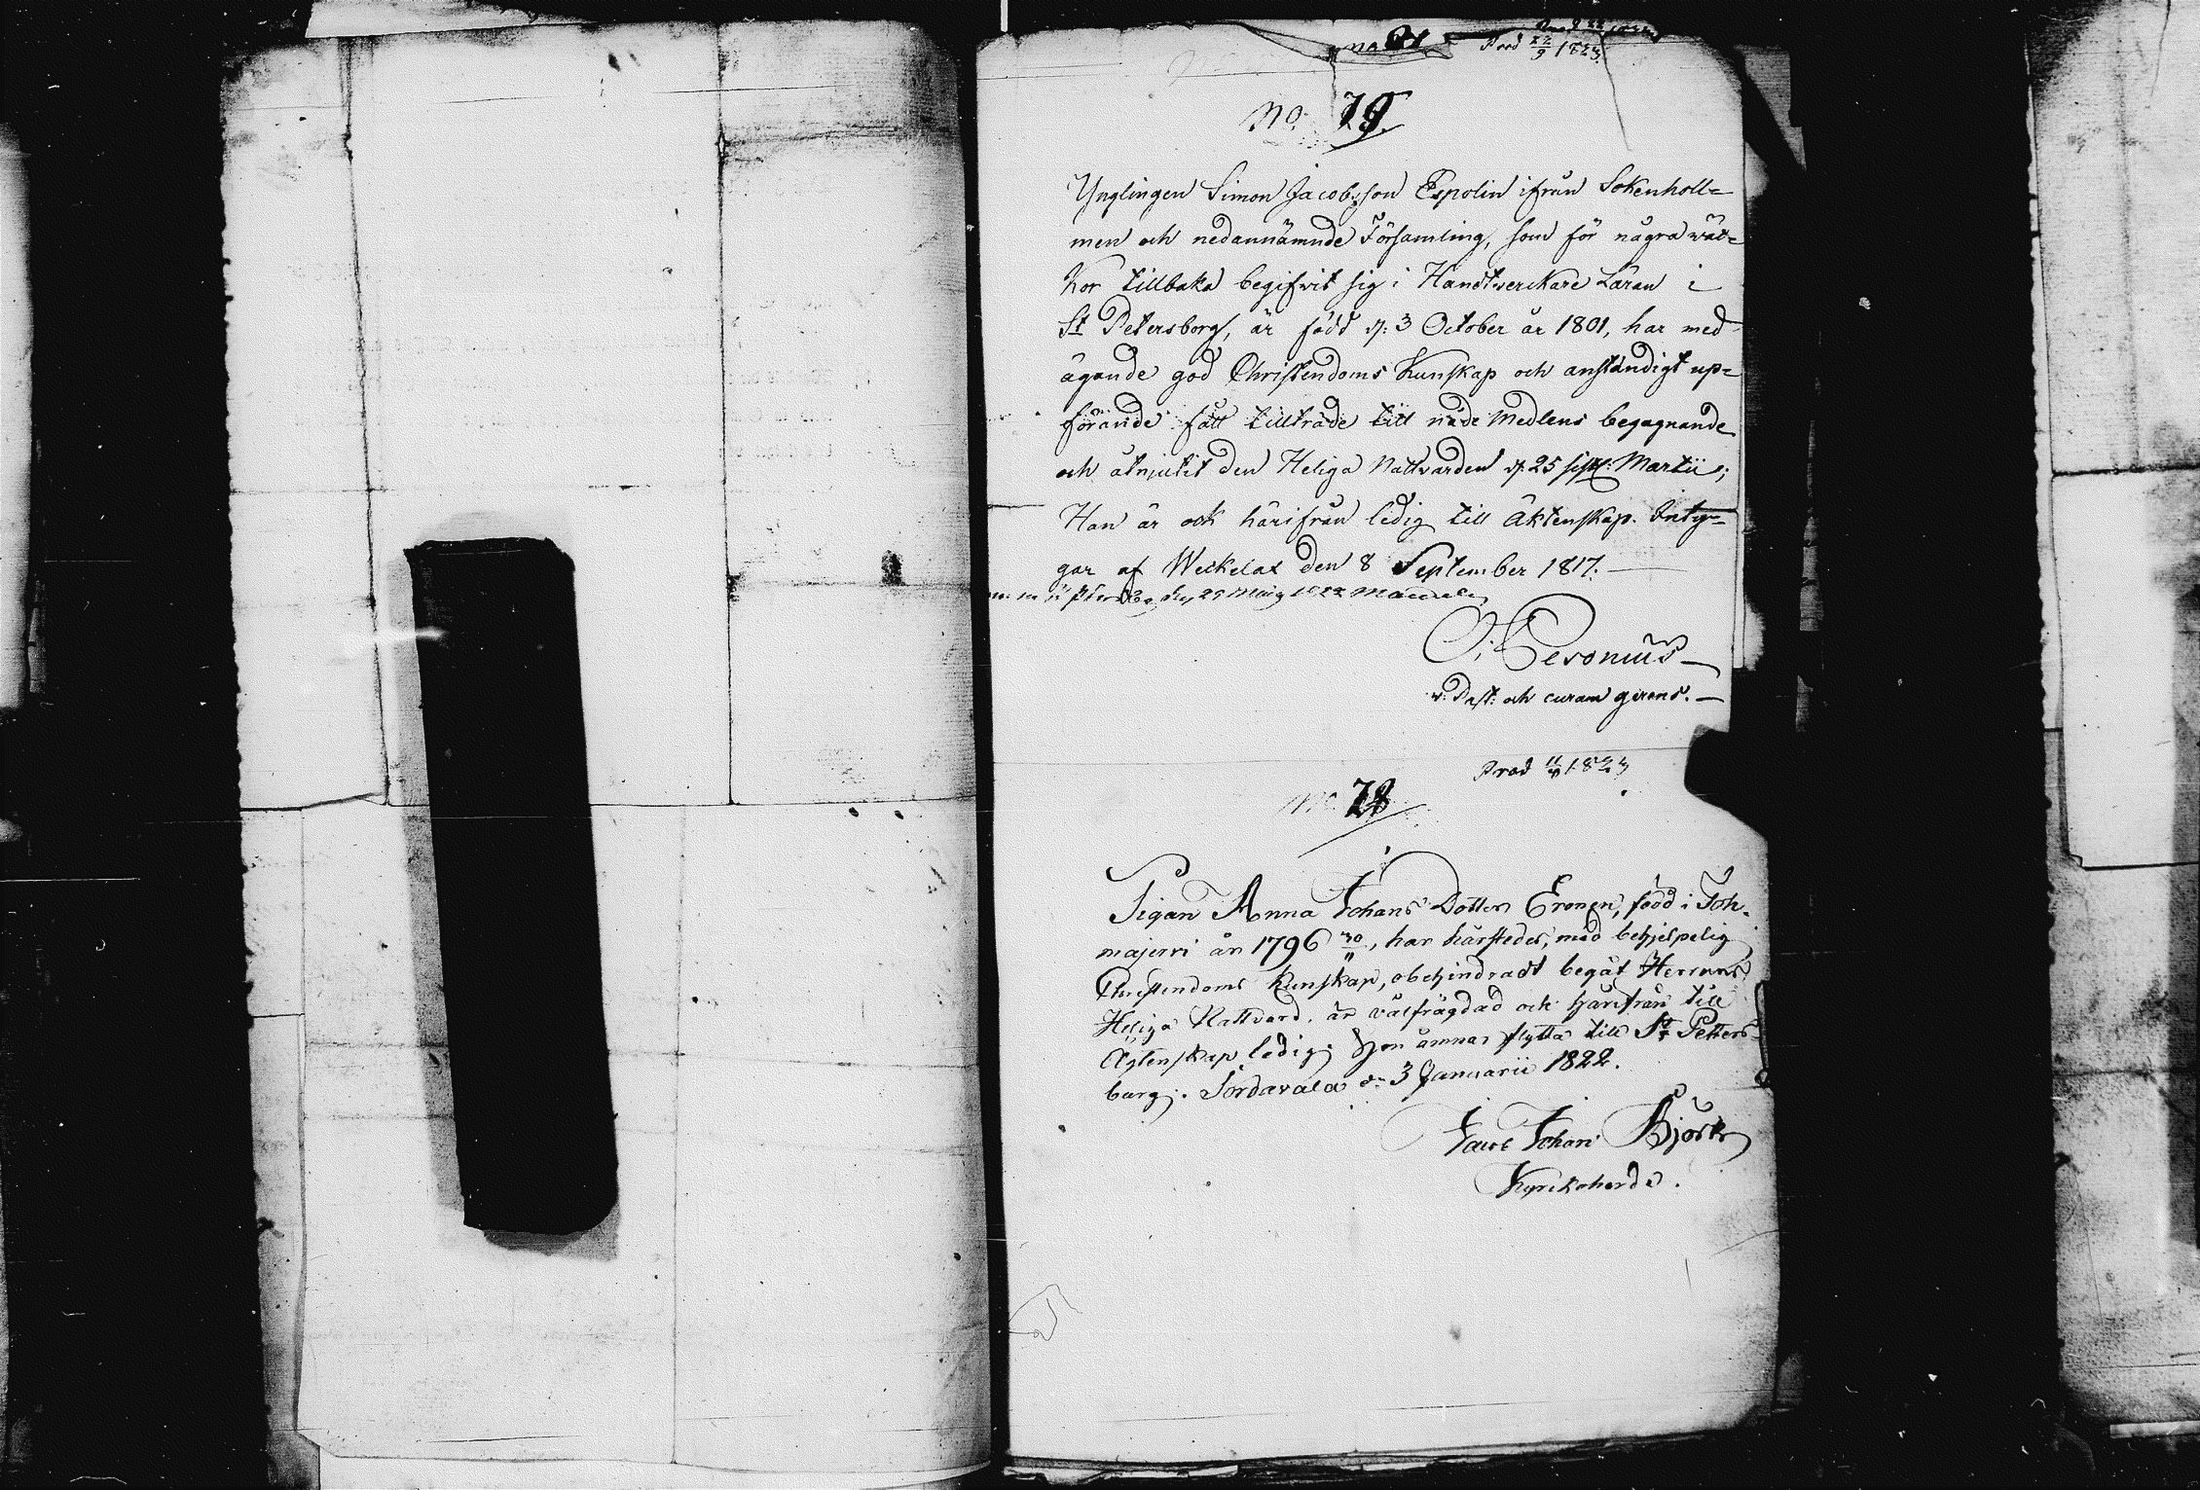 No 81
Prod 22/9 1823.
No. 79.
Ynglingen Simon Jacobsson Espolin ifrån Sokenholl=
men och nedannämnde Församling, som för några wät=
kor tillbaka begifvit sig i Handtverckare Läran i
St Petersborg, är född d: 3 October år 1801, har med
ägande god Christendoms Kunskap och anständigt up=
förande fått tillträde till nåde Medlens begagnande
och åtnjutit den Heliga Nattvarden d: 25 sistl: Martii;
Han är ock härifrån ledig till Äktenskap. Intyg=
gar af Weckelax den 8 September 1817.
29 Maij 1822
Pesonius
v: Past: och curam gerens.
Prod 1823
No. 78
Pigan Anna Johans Dotter Eronen, född i Toh=
majervi år 1796 30/11, har härstedes, med behjelpelig
Christendoms kunskap, obehindradt begåt Herrans
Heliga Nattvard, är välfrägdad och härifrån till
Ägtenskap ledig. Hon ämnar flytta till St Petters=
burg. Sordavala d: 3 Januarii 1822.
Jacob Johan Björk
Kyrckoherde.